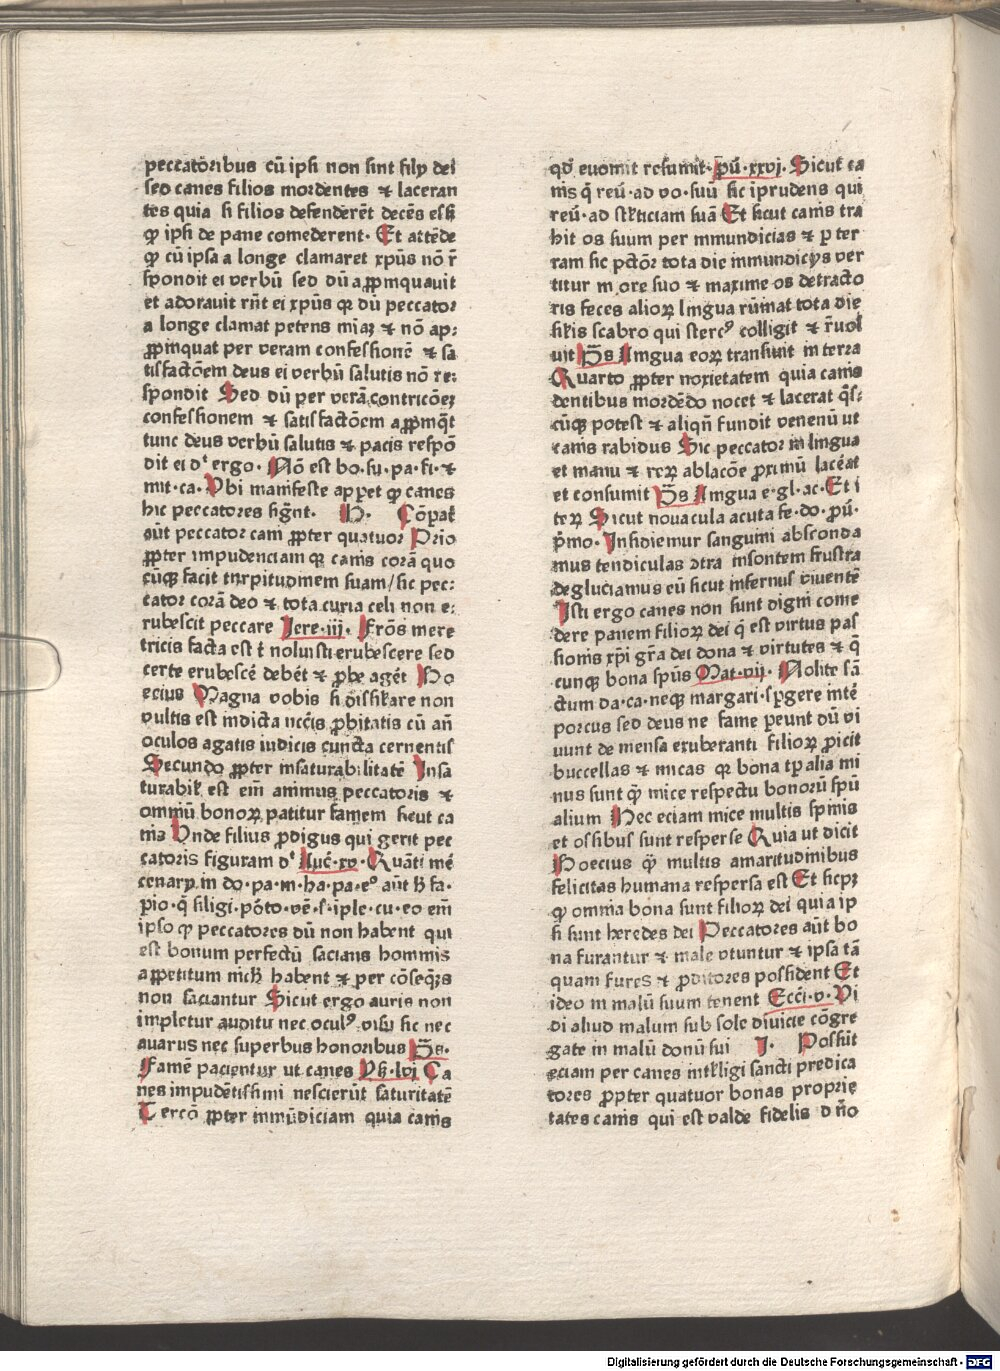 peccatoribus cū ipsi non sint filij dei
sed canes filios mordentes ⁊ laceran
tes quia si filios defenderēt decēs esset
ꝙ ipsi de pane comederent. Et attēde
ꝙ cū ipsa a longe clamaret xp̄us nō r̄
spondit ei verbū sed dū appinquauit
et adorauit rn̄t ei xp̄us qꝛ dū peccator
a longe clamat petens mīaꝫ ⁊ nō ap⸗
ꝓpinquat per veram confessionē ⁊ sa
tisfactōem deus ei verbū salutis nō re⸗
spondit Sed dū per verā contricōeꝫ
confessionem ⁊ satisfactōem appīnq̄t
tunc deus verbū salutis ⁊ pacis respō
dit ei dʳ ergo. Nō est bo. su. pa. fi. ⁊
mit. ca. Vbi manifeste apꝑet ꝙ canes
hic peccatores sign̄t. H. Cōpat̄
aūt peccator cani ꝓpter quatuor Prio
ꝓpter impudenciam qꝛ canis corā quo
cūqꝫ facit turpitudinem suam/sic pec⸗
cator corā deo ⁊ tota curia celi non e⸗
rubescit peccare Jere. iij. Frōs mere
tricis facta est t̄ noluisti erubescere sed
certe erubescē debēt ⁊ ꝓbe agēt Bo
ecius Magna vobis si dissikare non
vultis est indicta nccīs ꝓbitatis cū añ
oculos agatis iudicis cuncta cernentis
Secundo ꝓpter insaturabilitatē Insa
turabil̄ est em̄ animus peccatoris ⁊
omniū bonoꝝ patitur famem sicut ca
nis Unde filius ꝓdigus qui gerit pec
catoris figuram dʳ Luc̄. xv. Quāti mē
cenarij in do. pa. m. ha. pa. eᵒ aūt h̄ fa.
ꝑio. q̄ siligi. pōto. vē. s. iple. cu. eo em̄
ipso ꝙ peccatores dū non habent qui
est bonum perfectū sacians hominis
apꝑetitum nich̄ habent ⁊ per cōseq̄ns
non saciantur Sicut ergo auris non
impletur auditu nec oculꝰ visu sic nec
auarus nec superbus honoribus P̄s.
Famē pacientur ut canes Ys̄. lvi Ca
nes impudētissimi nescierūt saturitatē
Tercō ꝓpter inmūdiciam quia canis
qd̄ euomit resumit. pū. xxvj. Sicut ca
nis q̄ reū. ad vo. suū sic iprudens qui
reū. ad stl̄ticiam suā Et sicut canis tra
hit os suum per inmundicias ⁊ ꝑ ter
ram sic pctōꝛ tota die inmundicijs ver
titur in ore suo ⁊ maxime os detracto
ris feces alioꝝ lingua rūmat tota die
sil̄is scabro qui stercꝰ colligit ⁊ r̄uol
uit P̄s Lingua eoꝝ transiuit in terra
Quarto ꝓpter noxietatem quia canis
dentibus mordēdo nocet ⁊ lacerat q̄s⸗
cūqꝫ potest ⁊ aliqñ fundit venenū ut
canis rabidus Sic peccator in lingua
et manu ⁊ reꝝ ablacōe ꝓximū lac̄eat
et consumit P̄s Lingua e. gl. ac. Et i
teꝝ Sicut nouacula acuta fe. do. pū.
pͥmo. Insidiemur sangumi absconda
mus tendiculas ↄtra insontem frustra
degluciamus eū sicut infernus viuentē
Isti ergo canes non sunt digni come
dere panem filioꝝ dei q̄ est virtus pas
sionis xp̄i gr̄a dei dona ⁊ virtutes ⁊ q̄
cunqꝫ bona spūs Mat. vij. Nolite sā
ctum da. ca. neqꝫ margari. sp̄gere intē
porcus sed deus ne fame ꝑeunt dū vi
uunt de mensa exuberanti filioꝝ ꝓicit
buccellas ⁊ micas qꝛ bona tp̄alia mi
nus sunt q̄ mice respectu bonorū spū
alium Hec eciam mice multis spinis
et ossibus sunt resperse Quia ut dicit
Boecius q̄ multis amaritudinibus
felicitas humana respersa est Et sicpꝫ
ꝙ omnia bona sunt filioꝝ dei quia ip
si sunt heredes dei Peccatores aūt bo
na furantur ⁊ male vtuntur ⁊ ipsa tā
quam fures ⁊ ꝓditores possident Et
ideo in malū suum tenent Ecc̄i. v. Vi
di aliud malum sub sole diuicie cōgre
gate in malū donū sui J. Possūt
eciam per canes intl̄ligi sancti predica
tores ꝓpter quatuor bonas proprie
tates canis qui est valde fidelis d n̄o
Digitalisierung gefördert durch die Deutsche Forschungsgemeinschaft - DFG